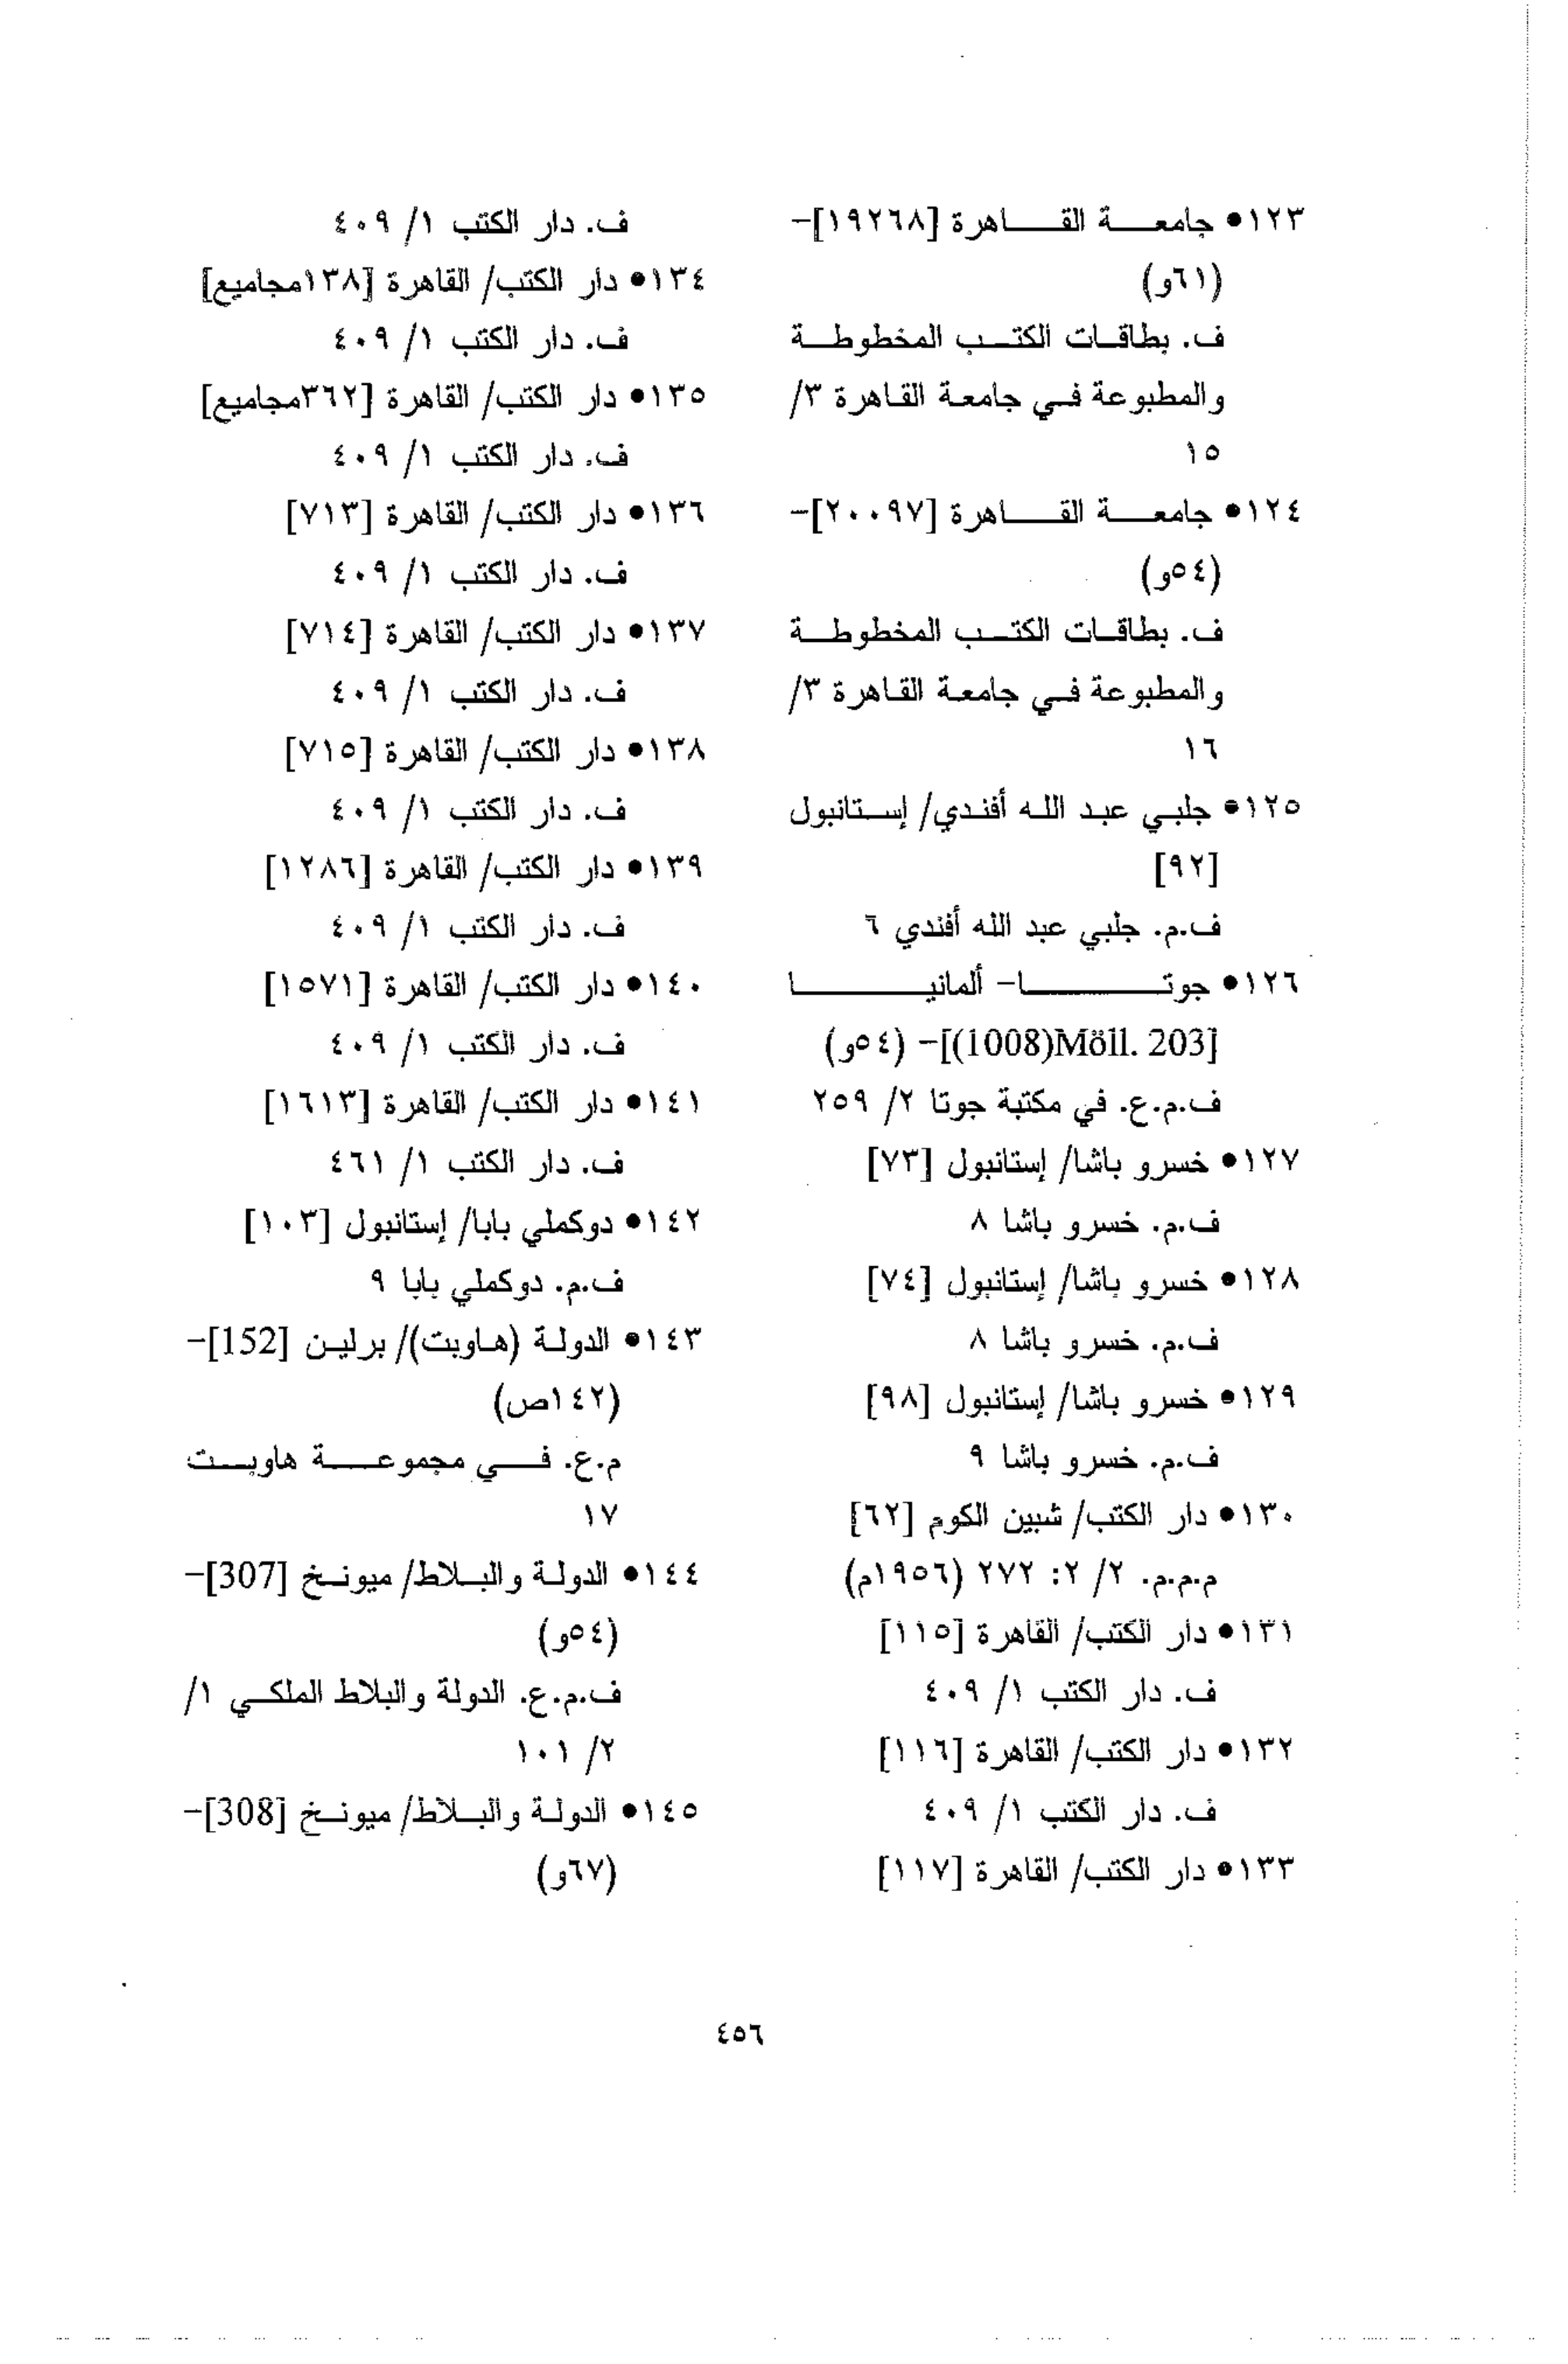 ١٢٣● جامعة القاهرة [١٩٢٦٨]-
(٦١و)
ف. بطاقات الكتب المخطوطة
والمطبوعة في جامعة القاهرة ٣/
١٥
١٢٤● جامعة القاهرة [٢٠٠٩٧]-
(٥٤و)
ف. بطاقات الكتب المخطوطة
والمطبوعة في جامعة القاهرة ٣/
١٦
١٢٥● جلبي عبد الله أفندي/ إستانبول
[٩٢]
ف.م. جلبي عبد الله أفندي ٦
١٢٦● جوتا- ألمانيا
[(1008)Möll. 203]- (٥٤و)
ف.م.ع. في مكتبة جوتا ٢/ ٢٥٩
١٢٧● خسرو باشا/ إستانبول [٧٣]
ف.م. خسرو باشا ٨
١٢٨● خسرو باشا/ إستانبول [٧٤]
ف.م. خسرو باشا ٨
١٢٩● خسرو باشا/ إستانبول [٩٨]
ف.م. خسرو باشا ٩
١٣٠● دار الكتب/ شبين الكوم [٦٢]
م.م.م. ٢/ ٢: ٢٧٢ (١٩٥٦م)
١٣١● دار الكتب/ القاهرة [١١٥]
ف. دار الكتب ١/ ٤٠٩
١٣٢● دار الكتب/ القاهرة [١١٦]
ف. دار الكتب ١/ ٤٠٩
١٣٣● دار الكتب/ القاهرة [١١٧]
ف. دار الكتب ١/ ٤٠٩
١٣٤● دار الكتب/ القاهرة [١٣٨مجاميع]
ف. دار الكتب ١/ ٤٠٩
١٣٥● دار الكتب/ القاهرة [٣٦٢مجاميع]
ف. دار الكتب ١/ ٤٠٩
١٣٦● دار الكتب/ القاهرة [٧١٣]
ف. دار الكتب ١/ ٤٠٩
١٣٧● دار الكتب/ القاهرة [٧١٤]
ف. دار الكتب ١/ ٤٠٩
١٣٨● دار الكتب/ القاهرة [٧١٥]
ف. دار الكتب ١/ ٤٠٩
١٣٩● دار الكتب/ القاهرة [١٢٨٦]
ف. دار الكتب ١/ ٤٠٩
١٤٠● دار الكتب/ القاهرة [١٥٧١]
ف. دار الكتب ١/ ٤٠٩
١٤١● دار الكتب/ القاهرة [١٦١٣]
ف. دار الكتب ١/ ٤٦١
١٤٢● دوكملي بابا/ إستانبول [١٠٣]
ف.م. دوكملي بابا ٩
١٤٣● الدولة (هاوبت)/ برلين [152]-
(١٤٢ص)
م.ع. في مجموعة هاوبت
١٧
١٤٤● الدولة والبلاط/ ميونخ [307]-
(٥٤و)
ف.م.ع. الدولة والبلاط الملكي ١/
٢/ ١٠١
١٤٥● الدولة والبلاط/ ميونخ [308]-
(٦٧و)
٤٥٦